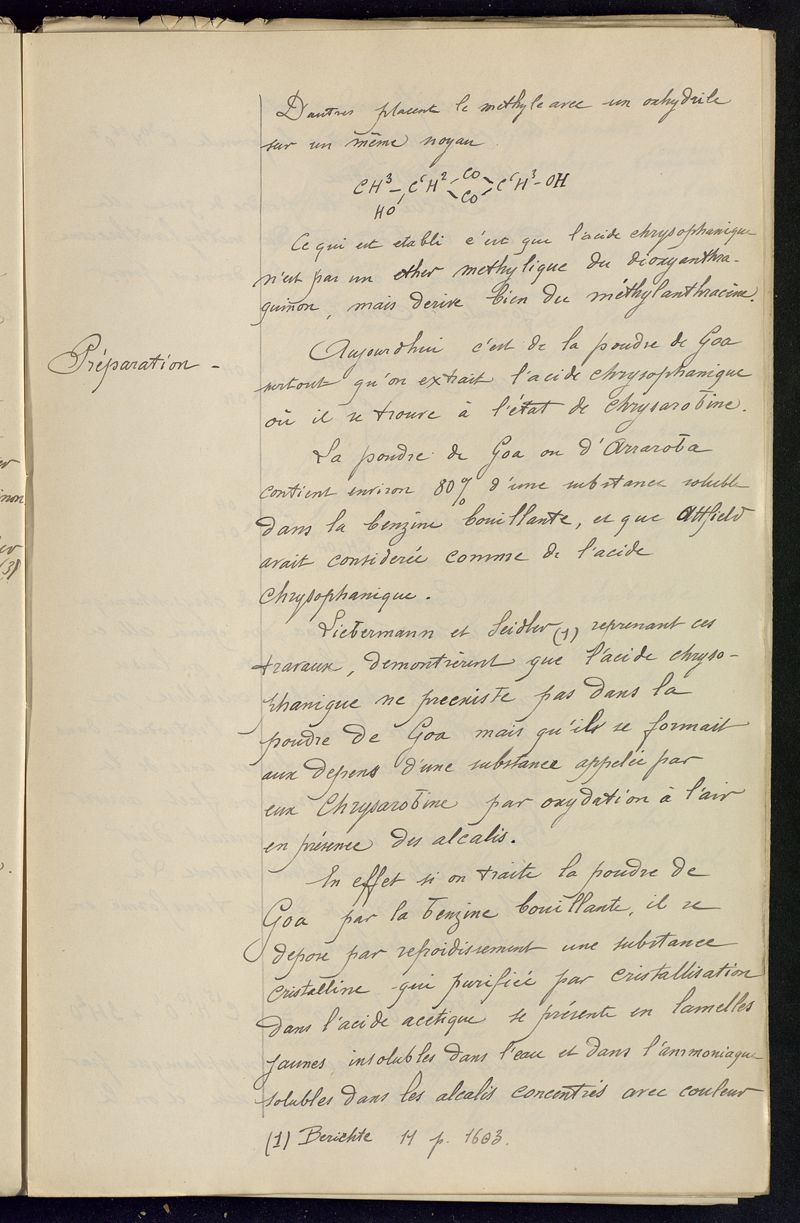 D'autres placent le methyle avec un oxhydrile
sur un même noyau
CH³ - C⁶H² CO CO C⁶H³ - OH
HO
Ce qui est etabli c'est que l'acide chrysophanique
n'est pas un ether methylique du dioxyanthra-
quinon, mais derive bien du méthylanthracène.
Préparation -
Aujourdhui c'est de la poudre de Goa
surtout qu'on extrait l'acide chrysophanique
où il se trouve à l'état de chrysarobine.
La poudre de Goa ou d'Araroba
contient environ 80% d'une substance soluble
dans la benzine bouillante, et que Attfield
avait considerée comme de l'acide
chrysophanique.
Liebermann et Seidler (1) reprenant ces
travaux, demontrèrent que l'acide chryso-
phanique ne preexiste pas dans la
poudre de Goa mais qu'ils se formait
aux depens d'une substance appelée par
eux Chrysarobine par oxydation à l'air
en présence des alcalis.
En effet si on traite la poudre de
Goa par la benzine bouillante, il se
depose par refroidissement une substance
cristalline qui purifiée par cristallisation
dans l'acide acetique se présente en lamelles
jaunes, insolubles dans l'eau et dans l'ammoniaque
solubles dans les alcalis concentrés avec couleur
(1) Berichte 11 p. 1603.